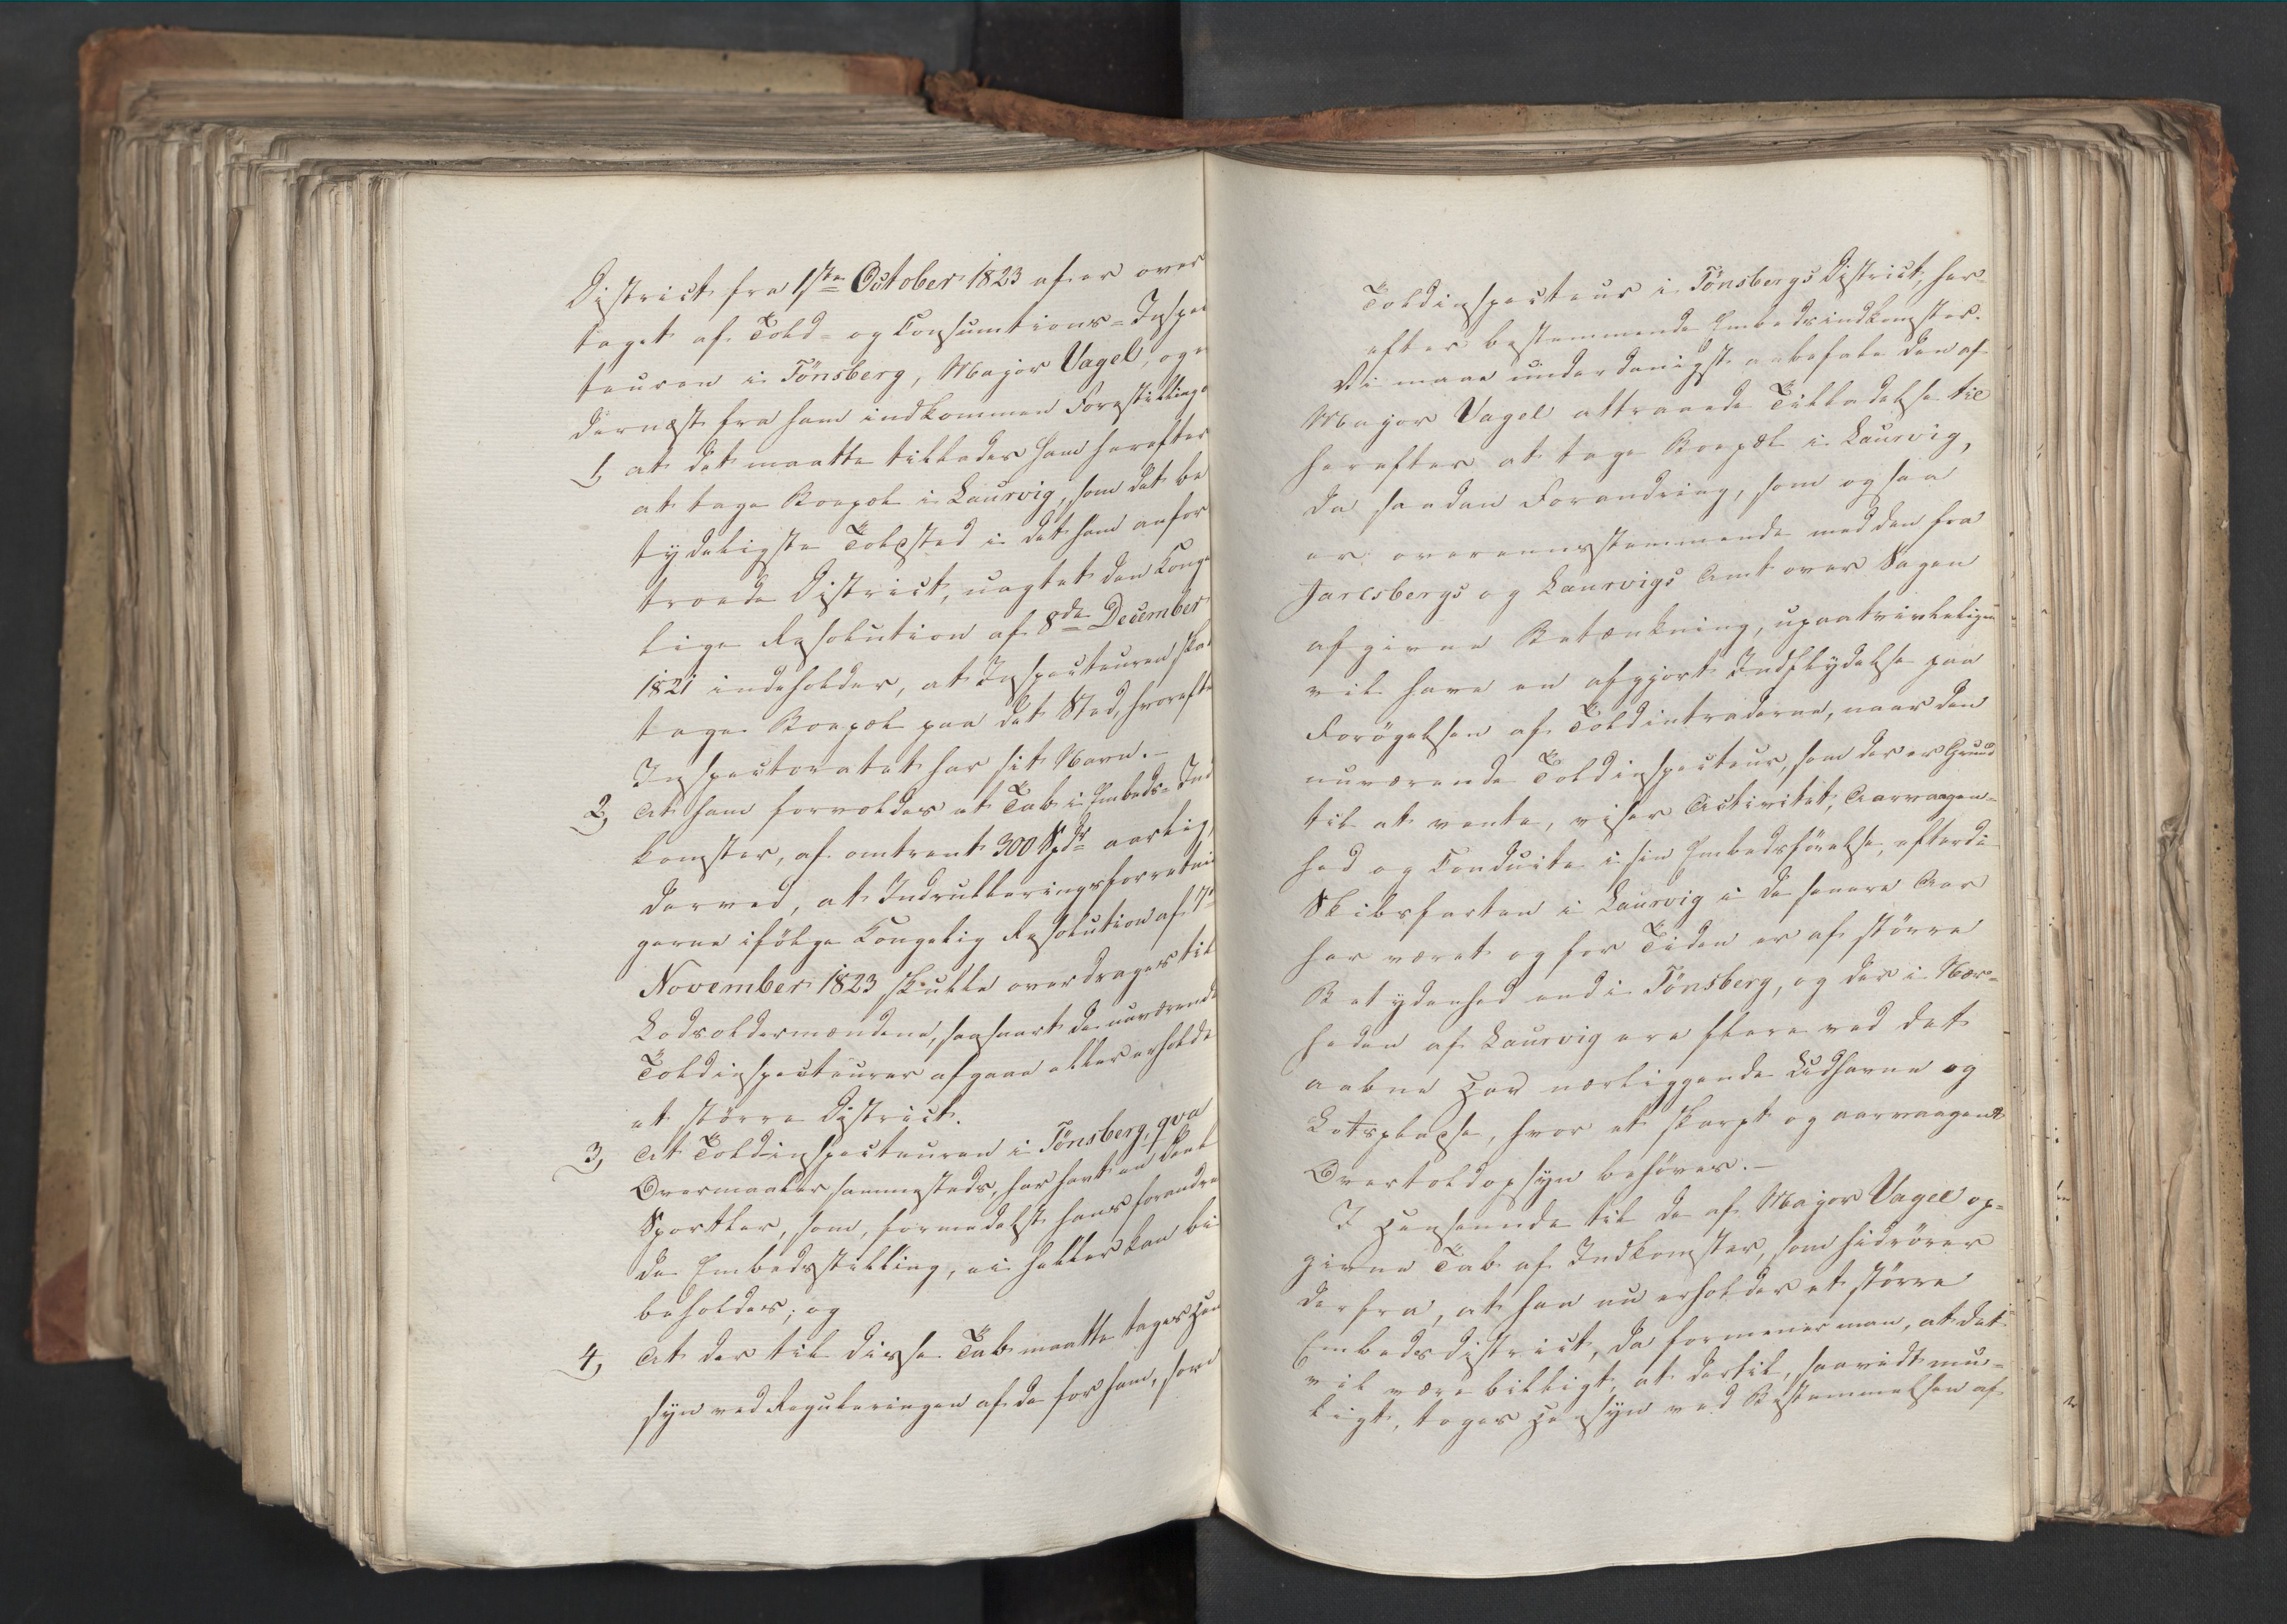 District fra 1ste October 1823 af er over
taget af Told- og Consumtions-Inspec
teuren i Tönsberg, Major Vagel, og
dernæst fra ham indkommen Forestilling
1, at det maatte tillades ham herefter
at tage Boepæl i Laurvig, som det be
tydeligste Toldsted i det ham anfor
troede District, uagtet den Konge
lige Resolution af 8de December
1821 indeholder, at Inspecteuren skal
tage Boepæl paa det Sted, hvorefter
Inspectoratet har sit Navn.-
2, At ham forvoldes et Tab i Embeds-Ind
komster, af omtrent 300 Spdr aarlig,
derved, at Indrulleringsforretnin
gerne ifölge Kongelig Resolution af 7de
November 1823 skulle overdrages til
Lodsoldermændene, saasnart de nuværende
Toldinspecteurer afgaae eller erholde
et större District.
3, At Toldinspecteuren i Tönsberg, qva
Overmaaler sammesteds, har havt en Deel
Sportler, som, formedelst hans forandre
de Embedsstilling, ei heller kan bi
beholdes; og
4, At der til disse Tab maatte tages Hen
syn ved Reguleringen af de for ham, som
Toldinspecteur i Tönsbergs District, her-
efter bestemmende Embedsindkomster.
Vi maae underdanigst anbefale den af
Major Vagel attraaede Tilladelse til
herefter at tage Boepæl i Laurvig,
da saadan Forandring, som ogsaa
er overeensstemmende med den fra
Jarlsbergs og Laurvigs Amt over Sagen
afgivne Betænkning, upaatvivleligen
vil have en afgjort Indflydelse paa
Forögelsen af Toldintraderne, naar den
nuværende Toldinspecteur, som der er Grund
til at vente, viser Activitet, Aarvaagen-
hed og Conduite i sin Embedsförelse, efterdi
Skibsfarten i Laurvig i de senere Aar
har været og for Tiden er af större
Betydenhed end i Tönsberg, og der i Nær-
heden af Laurvig ere flere ved det
aabne Hav nærliggende Udhavne og
Ladspladse, hvor et skarpt og aarvaagent
Overtoldopsyn behöves.-
I Henseende til de af Major Vagel op-
givne Tab af Indkomster, som hidrörer
derfra, at han nu erholder et större
Embedsdistrict, da formener man, at det
vil være billigt, at dertil, saavidt mu-
ligt, tages Hensyn ved Bestemmelsen af